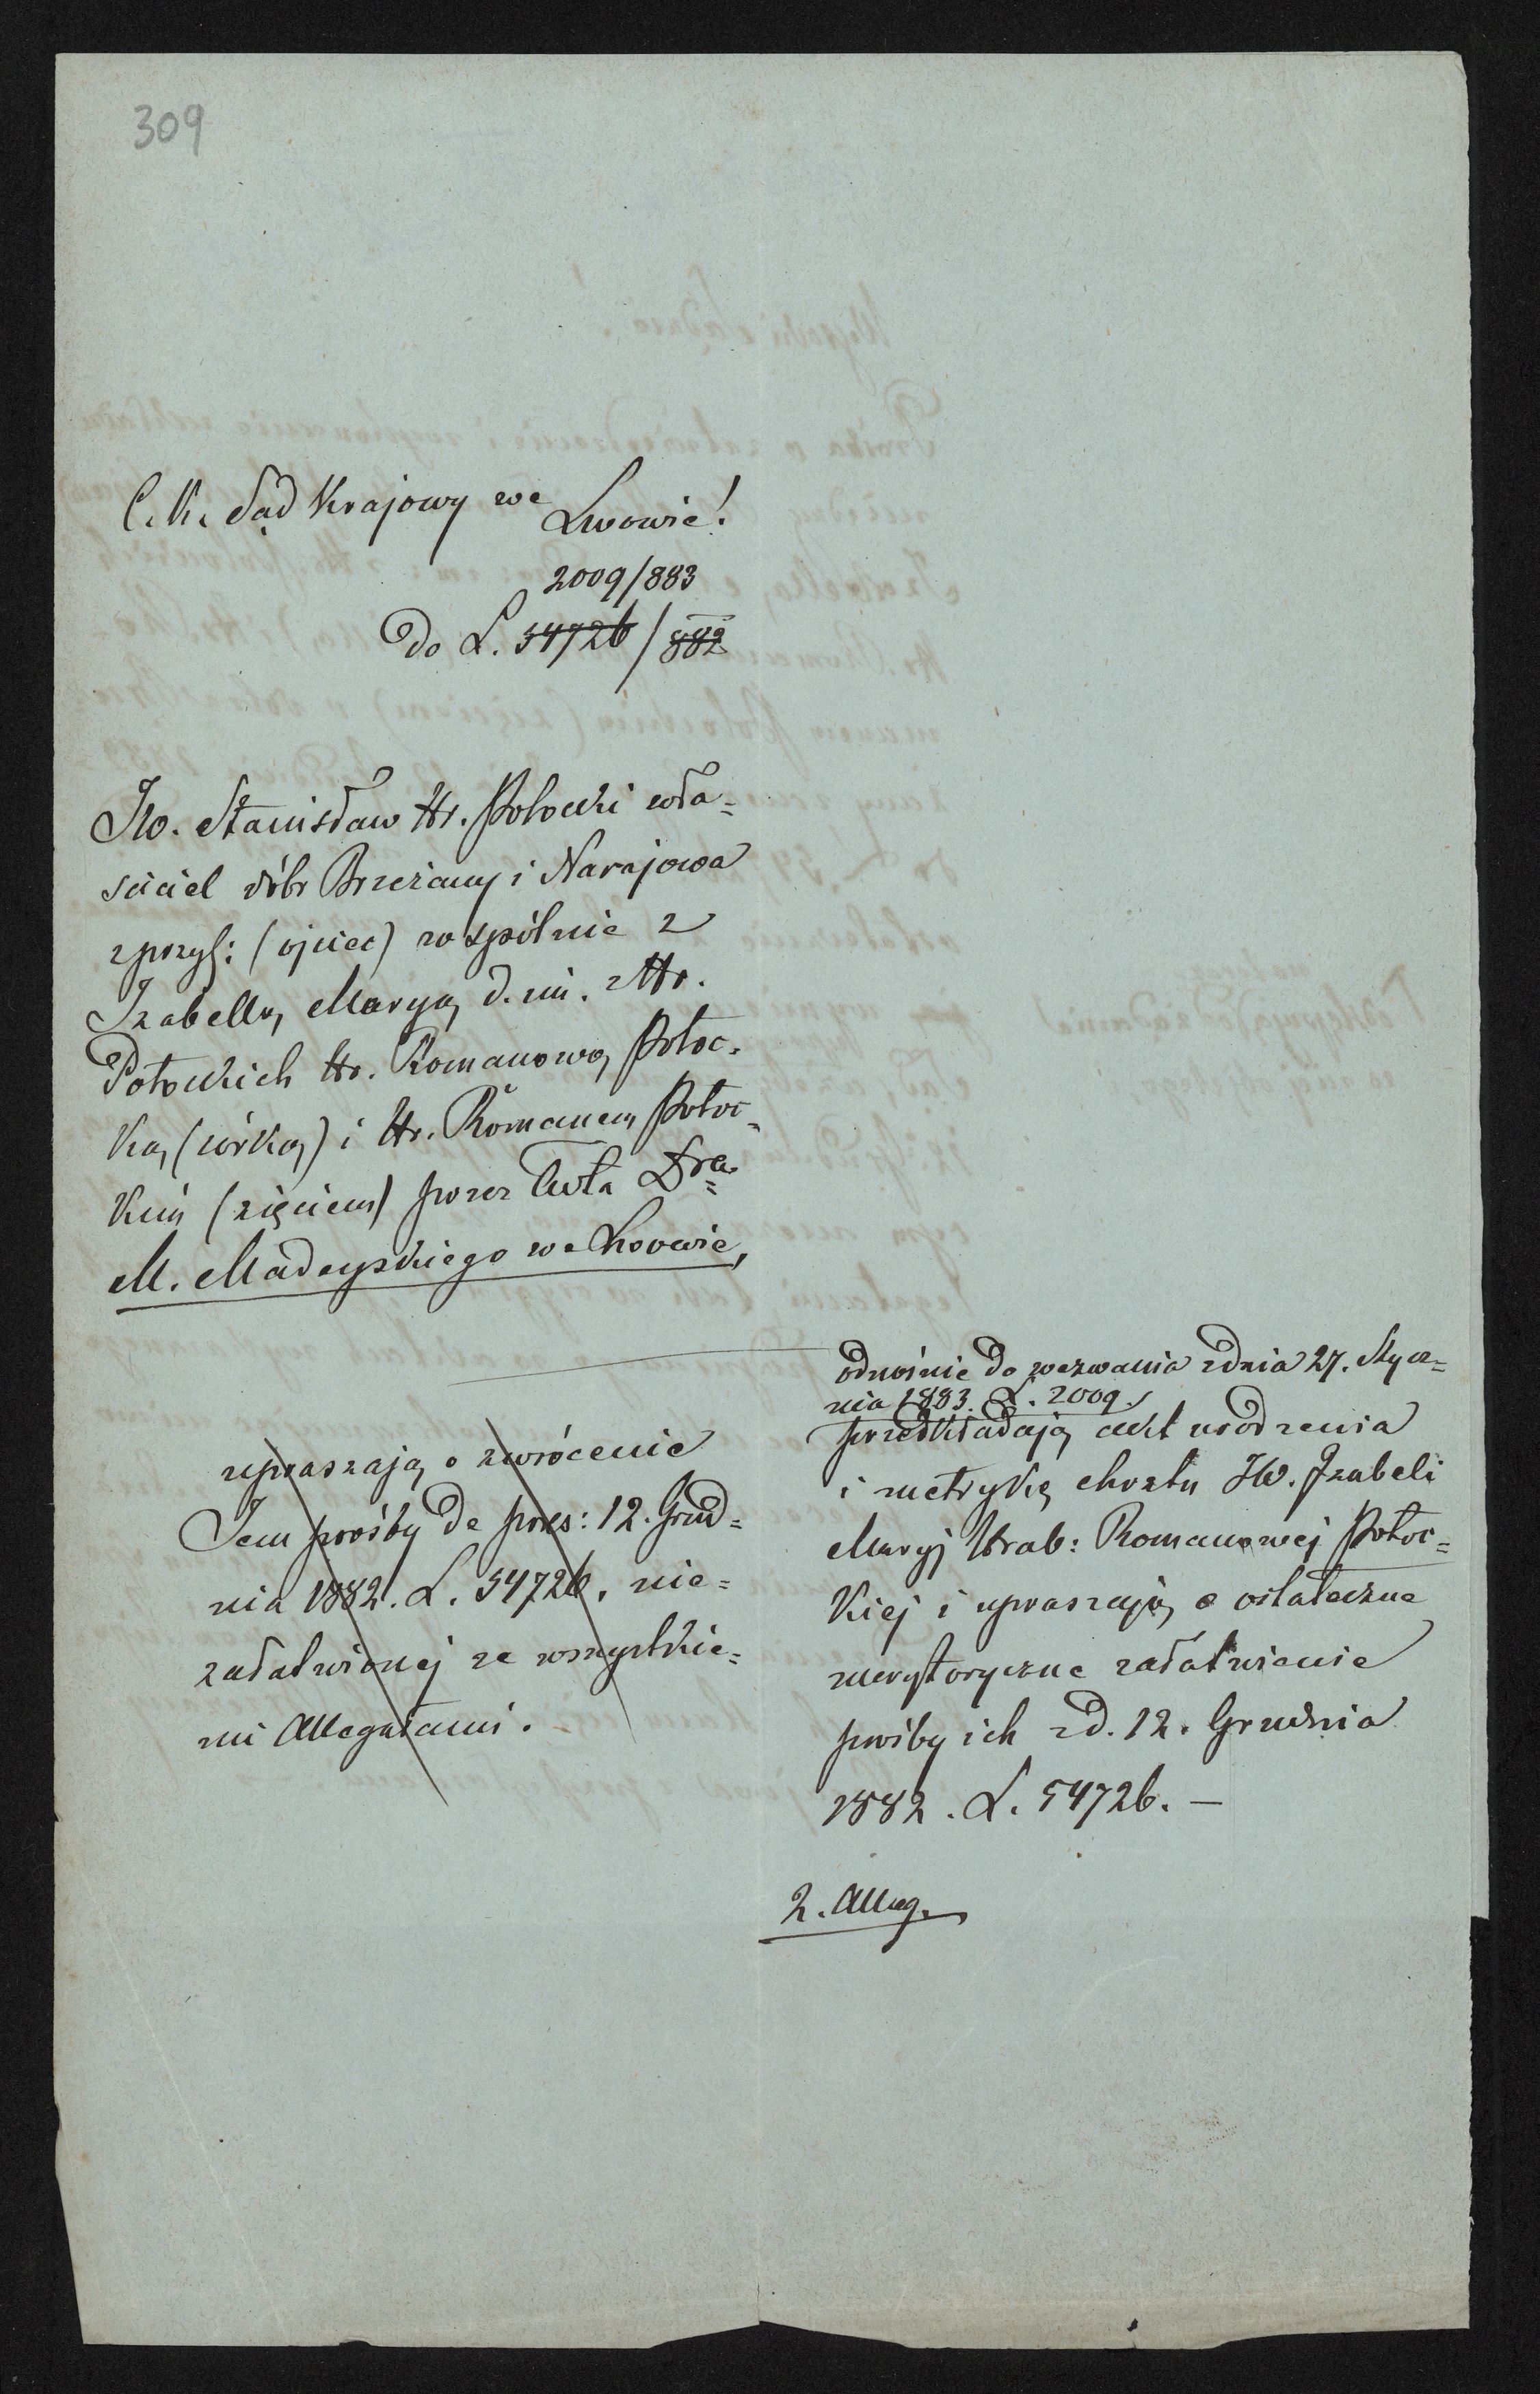 309
C. K. Sąd Krajowy we
Lwowie!
2009/883
Do L. 54726/882
JW. Stanisław Hr. Potocki wła=
sciciel dóbr Brzeżany i Narajowa
z przyl: (ojciec) wspólnie z
Izabellą Maryą d. im. z Hr.
Potockich Hr. Romanową Potoc=
ką (córką) i Hr. Romanem Potoc=
kim (zięciem) przez Adwta Dra
M. Madeyskiego we Lwowie,
upraszają o zwrócenie
Jem prośby de pres: 12. Grud=
nia 1882. L. 54726. nie=
załatwionej ze wszystkie=
mi Allegatami.
odnośnie do wezwania z dnia 27. Stycz=
nia 1883. L. 2009.
przedkładają akt urodzenia
i metrykę chrztu JW. Izabeli
Maryj Hrab: Romanowej Potoc=
kiej i upraszają o ostateczne
merytoryczne załatwienie
prośby ich z d. 12. Grudnia
1882. L. 54726. —
2. Alleg.